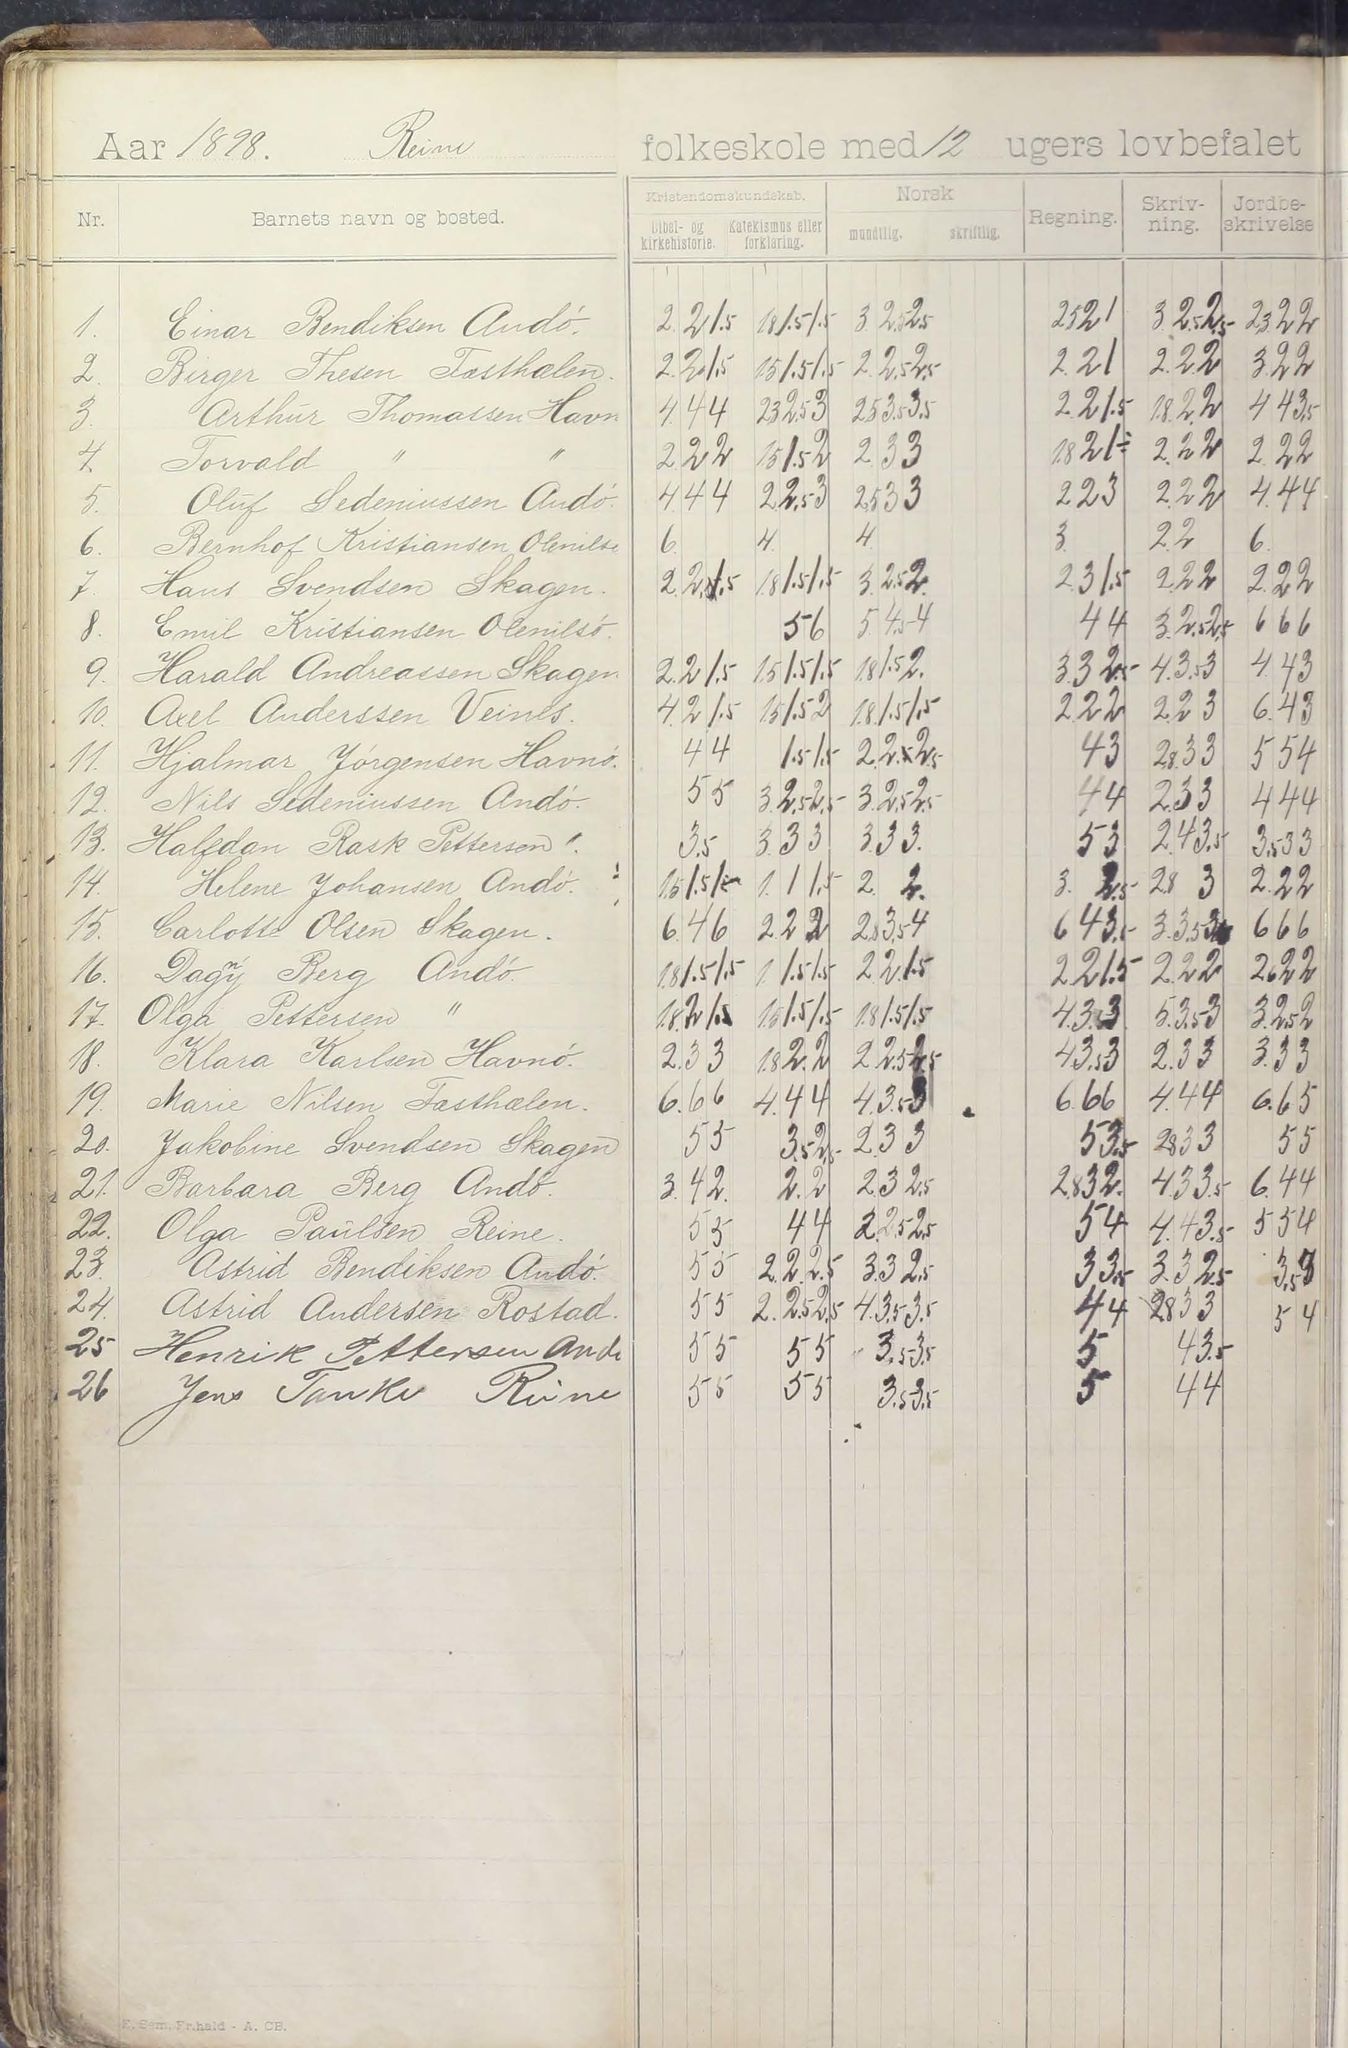 Aar 1898. Reine folkeskole med 12 ugers lovbefalet
Nr. Barnets navn og bosted. Kristendomskundskab. Norsk Regning. Skriv-ning. Jordbe-skrivelse
Bibel- og kirkehistorie. Katekismus eller forklaring. mundtlig. skriftlig.
1. Einar Bendiksen Andö. 2. 2 1.5 1.8 1.5 1.5 3. 2.5 2.5 2.5 2 1 3. 2.5 2.5 2.3 2 2
2. Birger Thesen Tasthalen. 2. 2 1.5 1.5 1.5 1.5 2. 2.5 2.5 2. 2 1 2. 2 2 3. 2 2
3. Arthur Thomassen Havn 4. 4 4 2.3 2.5 3 2.5 3.5 3.5 2. 2 1.5 1.8 2. 2 4 4 3.5
4. Torvald " " 2. 2 2 1.5 1.5 2 2. 3 3 1.8 2 1 2. 2 2 2. 2 2
5. Oluf Sedeniussen Andö. 4. 4 4 2. 2.5 3 2.5 3 3 2 2 3 2. 2 2 4. 4 4
6. Bernhof Kristiansen Olenilsö 6. 4. 4. 3. 2 2 6.
7. Hans Svendsen Skagen. 2. 2 1.5 1.8 1.5 1.5 3. 2.5 2. 2. 3 1.5 2. 2 2 2. 2 2
8. Emil Kristiansen Olenilsö. 5 6 5. 4.5 4 4 4 3. 2.5 2.5 6 6 6
9. Harald Andreassen Skagen 2. 2 1.5 1.5 1.5 1.5 1.8 1.5 2. 3. 3 2.5 4. 3.5 3 4. 4 3
10. Axel Anderssen Veines. 4. 2 1.5 1.5 1.5 2 1.8 1.5 1.5 2. 2 2 2. 2 3 6. 4 3
11. Hjalmar Jörgensen Havnö. 4 4 1.5 1.5 2. 2. 2.5 4 3 2.8 3 3 5 5 4
12. Nils Sedeniussen Andö. 5 5 3. 2.5 2.5 3. 2.5 2.5 4 4 2. 3 3 4 4 4
13. Halfdan Rask Pettersen ". 3.5 3. 3 3 3. 3 3. 5 3 2. 4 3.5 3.5 3 3
14. Helene Johansen Andö. 1.5 1.5 1. 1 1.5 2. 2. 3. 2.5 2.8 3 2. 2 2
15. Carlotte Olsen Skagen. 6. 4 6 2. 2 2 2.8 3.5 4 6 4 3.5 3. 3.5 3 6 6 6
16. Dagny Berg Andö 1.8 1.5 1.5 1 1.5 1.5 2. 2 1.5 2. 2 1.5 2. 2 2 2.6 2 2
17. Olga Pettersen " 1.8 2 1.5 1.5 1.5 1.5 1.8 1.5 1.5 4. 3. 3 5. 3.5 3 3. 2.5 2
18. Klara Karlsen Havnö. 2. 3 3 1.8 2. 2 2. 2.5 2.5 4 3.5 3 2. 3 3 3. 3 3
19. Marie Nilsen Tasthalen. 6. 6 6 4. 4 4 4. 3.5 3 6. 6 6 4. 4 4 6. 6 5
20. Jakobine Svendsen Skagen 5 5 3.5 2.5 2. 3 3 5 3.5 2.8 3 3 5 5
21. Barbara Berg Andö. 3. 4 2. 2. 2 2. 3 2.5 2.8 3 2. 4. 3 3.5 6. 4 4
22. Olga Paulsen Reine. 5 5 4 4 2. 2.5 2.5 5 4 4. 4 3.5 5 5 4
23. Astrid Bendiksen Andö. 5 5 2. 2. 2.5 3. 3 2.5 3 3.5 3. 3 2.5 3.5 3
24. Astrid Andersen Rostad. 5 5 2. 2.5 2.5 4. 3.5 3.5 4 4 2.8 3 3 5 4
25 Henrik Pettersen Andö 5 5 5 5 3.5 3.5 5 4 3.5
26 Jens Tanke Reine 5 5 5 5 3.5 3.5 5 4 4
E. Sem, Fr.hald - A. CB.